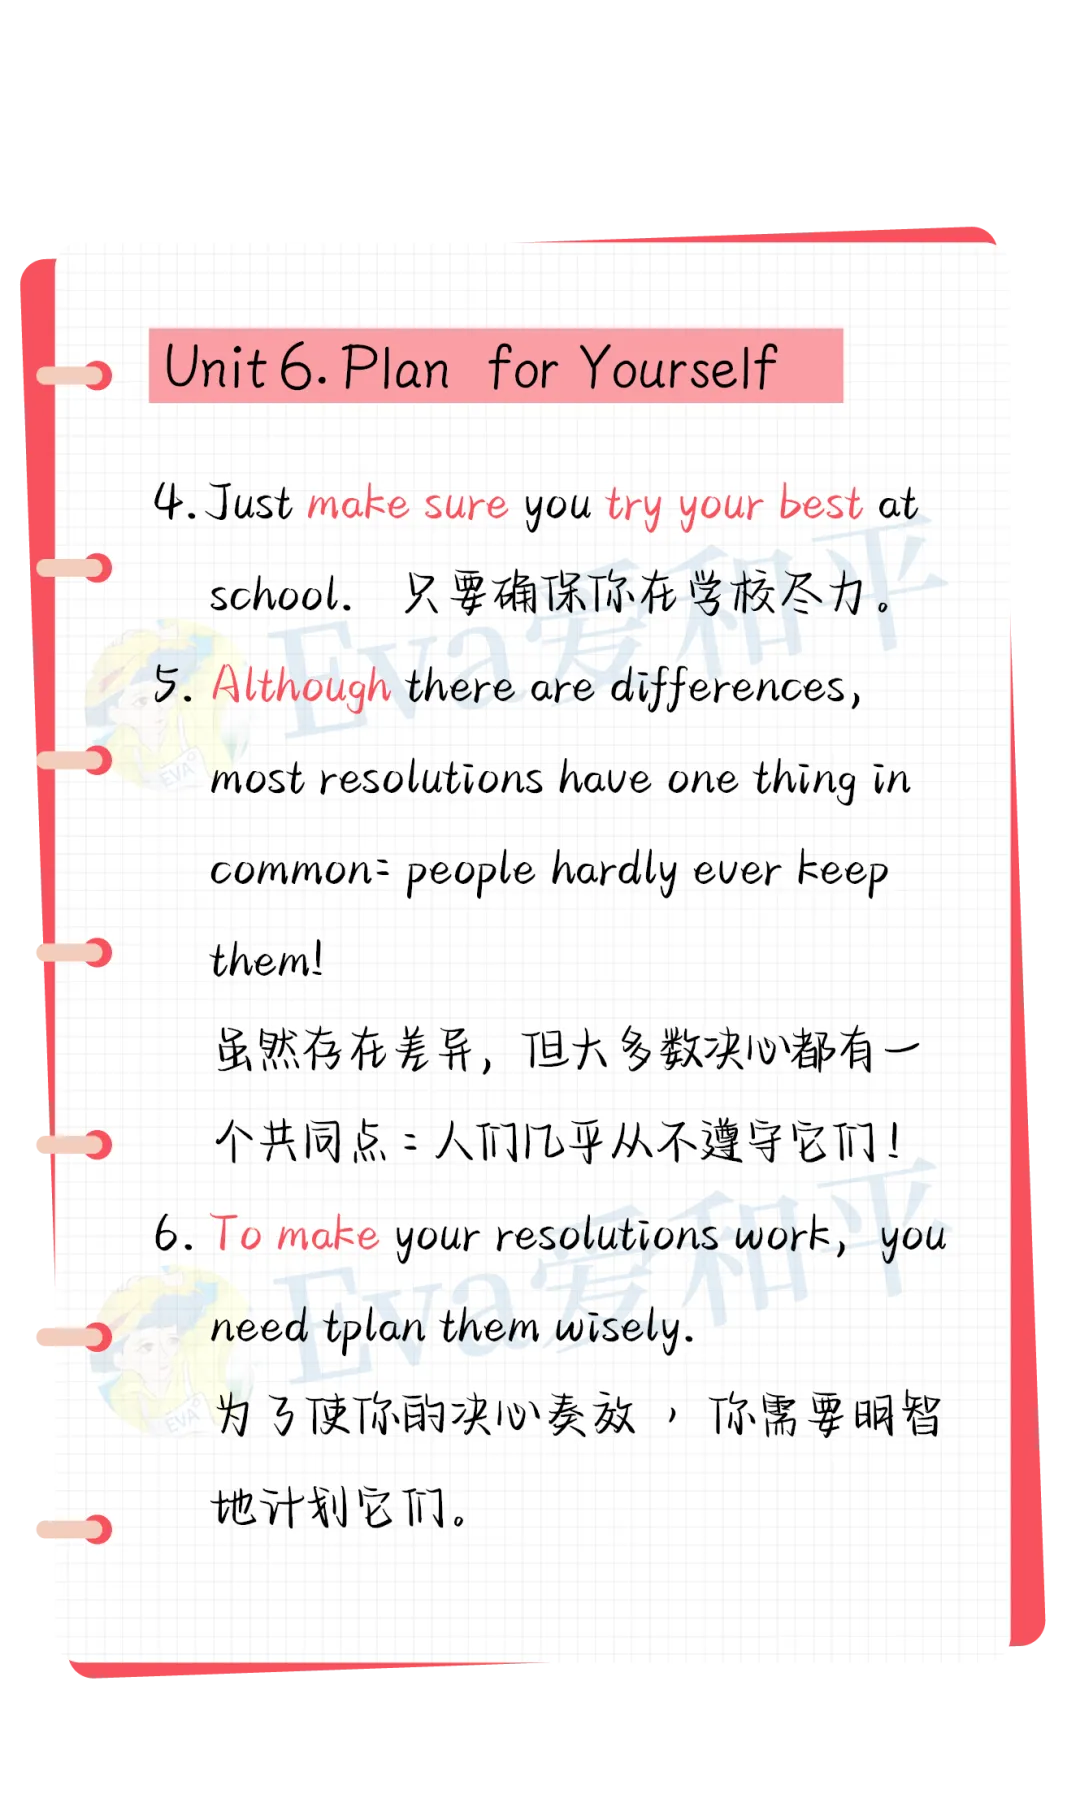 Unit 6. Plan for Yourself
4. Just make sure you try your best at
school. 只要确保你在学校尽力。
5. Although there are differences,
most resolutions have one thing in
common: people hardly ever keep
them!
虽然存在差异, 但大多数决心都有一
个共同点: 人们几乎从不遵守它们!
6. To make your resolutions work, you
need tplan them wisely.
为了使你的决心奏效, 你需要明智
地计划它们。
Eva爱和平
EVA
Eva爱和平
EVA